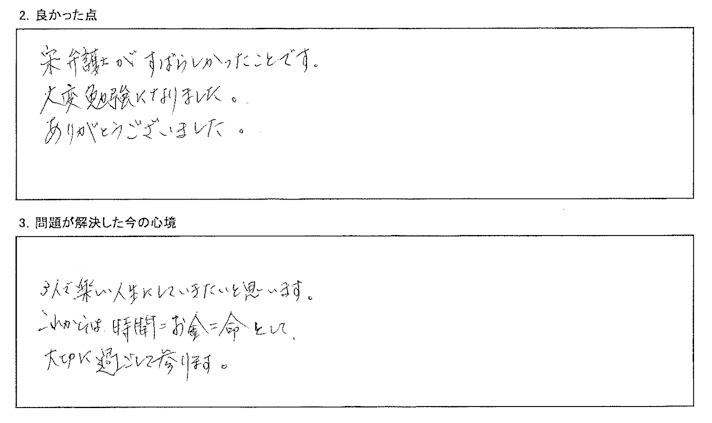 2. 良かった点
宋弁護士がすばらしかったことです。
大変勉強になりました。
ありがとうございました。
3. 問題が解決した今の心境
3人で楽しい人生にしていきたいと思います。
これからは時間=お金=命として、
大切に過ごして参ります。